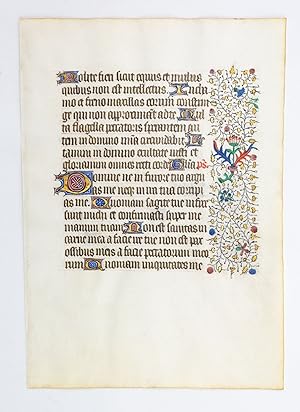 Nolite fieri sicut equus et mulus
quibus non est intellectus In chamo
mo et freno maxillas eorum constrin
ge qui non approximant ad te Mul
ta flagella peccatoris sperantem au
tem in domino mia circumdabit Le
tamini in domino et exultate iusti et
gloriamini omnes recti corde ps
Domine ne in furore tuo argu
as me neqz in ira tua corripi
as me Quoniam sagitte tue infixe
sunt michi et confirmasti super me
manum tuam Non est sanitas in
carne mea a facie ire tue non est pax
ossibus meis a facie peccatorum meo
rum Quoniam iniquitates me